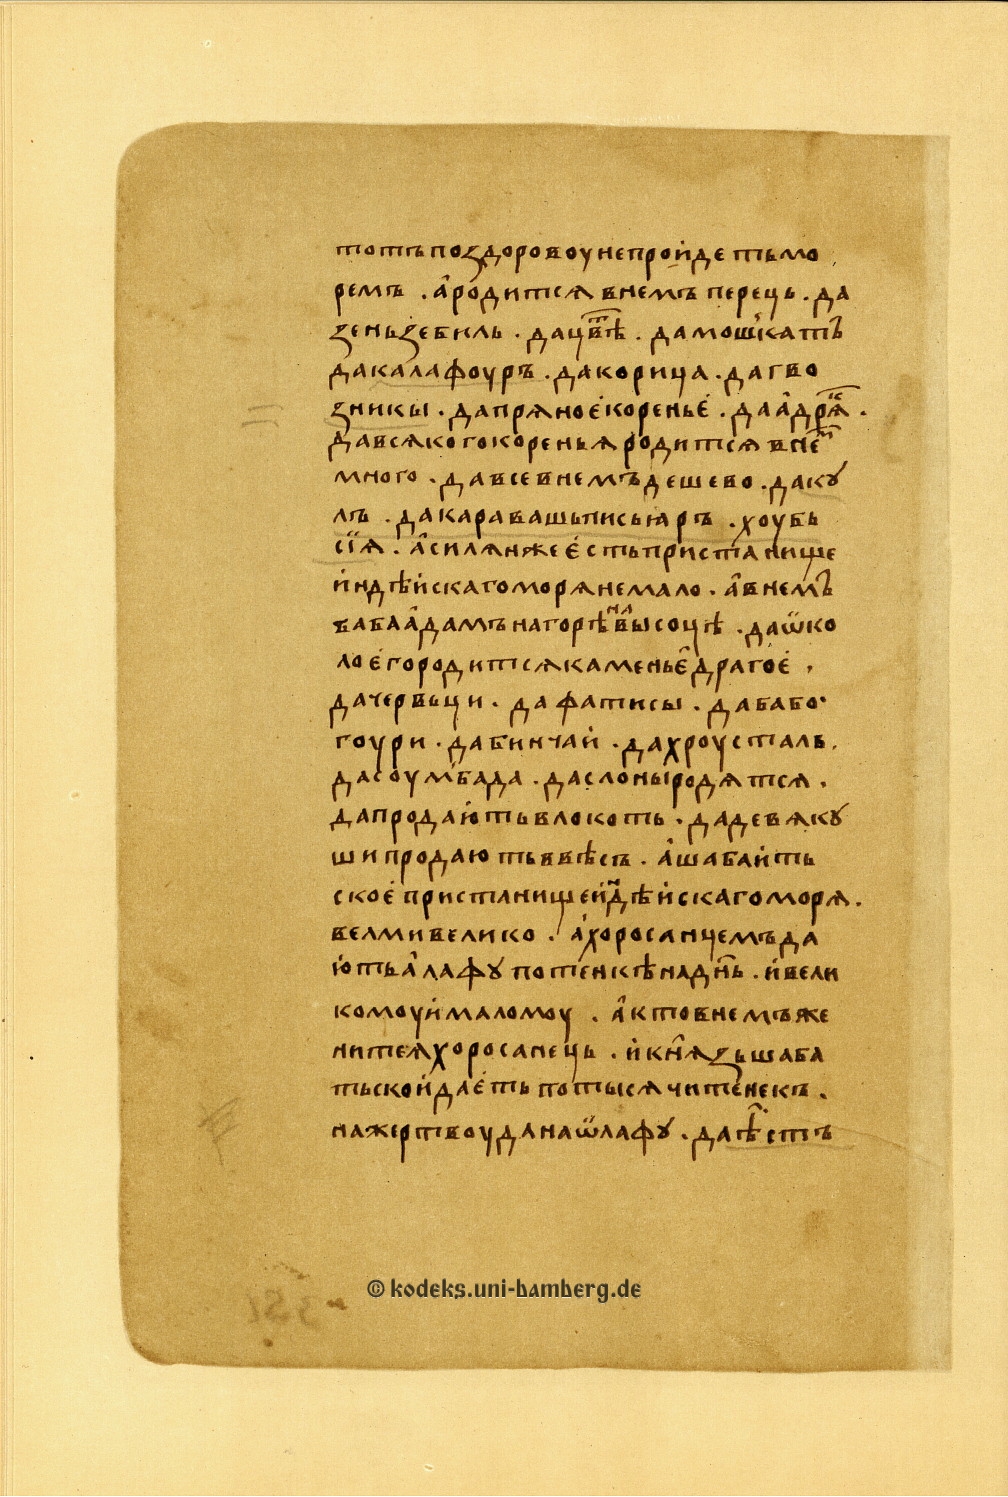 тотъпоздоровоунепройдетьмо
ремъ .ародитсѧвнемъперець . да
зеньзебиль . дацвⷮѣ . дамошкатъ
дакалафоуръ . дакорица . дагво
зникы . дапрѧноекоренье . даадрѧⷦ .
давсѧкогокореньѧродитсѧвнеⷨ
много . давсевнемъдешево . дакꙋ
лъ . дакаравашьписьꙗръ . хоубь
сїѧ . асилѧнжеестьпристанище
индѣйскагоморѧнемало . авнемъ
бабаадамънагорѣнавысоцѣ . даѿко
лоегородитсѧкаменьедрагое .
дачервьци . дафатисы . дабабо
гоури . дабинчаи . дахроусталь .
дасоумбада . даслоныродѧтсѧ .
дапродаютьвлокоть . дадевѧкꙋ
шипродаютьввѣсъ . ашабаить
скоепристанищеиⷩдѣйскагоморѧ .
велмивелико . ахоросанцемъда
ютьалафꙋпотенкѣнаднь . ивели
комоуималомоу . актовнемъже
нитсѧхоросанець . икнѧзьшаба
тьскойдаетьпотысѧчитенекъ .
нажертвоуданаѿлафꙋ . даѣстъ
© kodeks.uni-bamberg.de